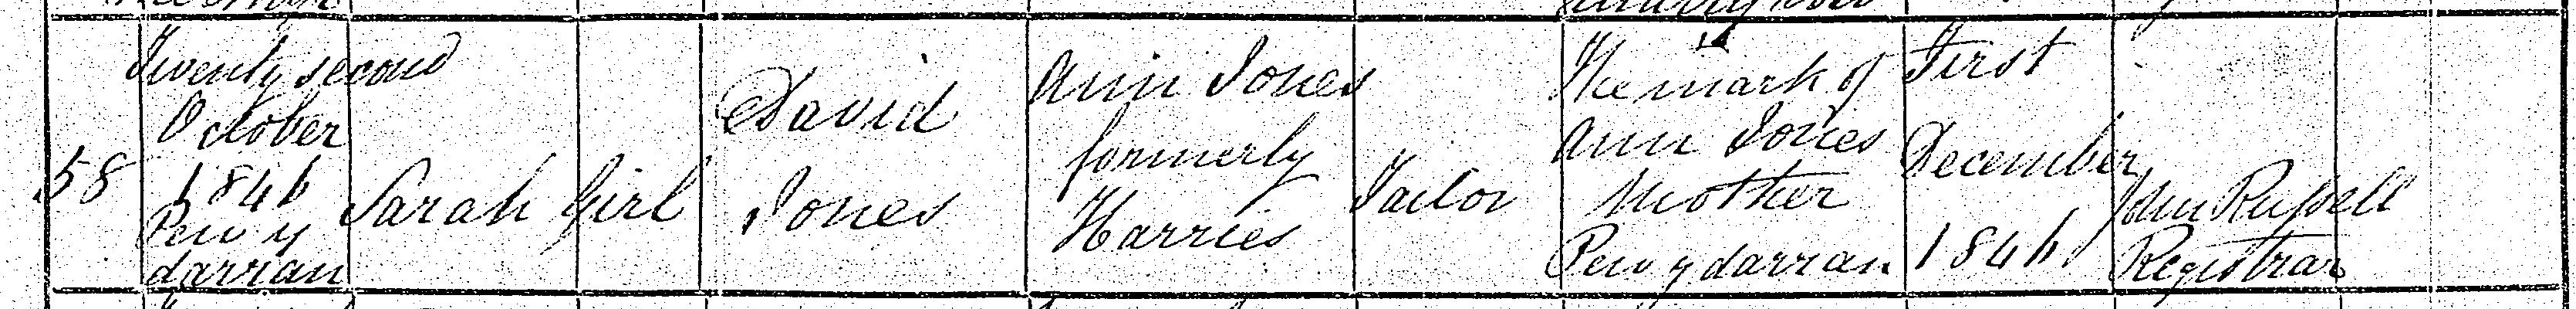 58
Twenty second
October
1846
Penydarran
Sarah
Girl
David
Jones
Ann Jones
formerly
Harries
Tailor
The mark of
Ann Jones
Mother
Penydarran
First
December
1846
John Russell
Registrar